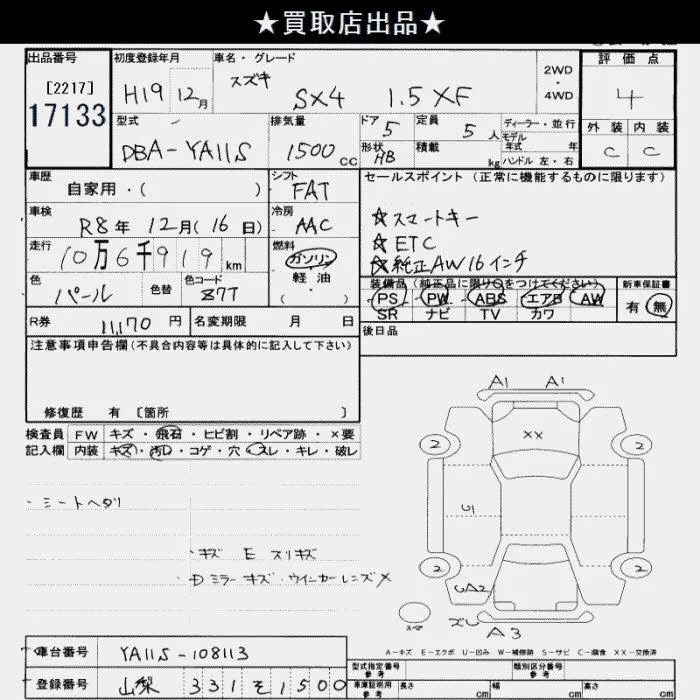 ★買取店出品★
出品番号
[2217]
17133
初度登録年月
H19 12月
車名・グレード
スズキ
SX4 1.5 XF
2WD
・
4WD
評価点
4
外装 内装
C C
型式
DBA-YA11S
排気量
1500cc
ドア 5
形状 HB
定員 5人
積載 kg
ディーラー・並行
モデル
年式 年
ハンドル 左・右
車歴
自家用・( )
シフト
FAT
セールスポイント(正常に機能するものに限ります)
☆スマートキー
☆ETC
☆純正AW16インチ
車検
R8年 12月(16日)
冷房
AAC
走行
10万6千919km
燃料
ガソリン
軽・油
・( )
色
パール
色替
色コード
Z7T
装備品(純正品に限り○をつけてください)
PS・PW・ABS・エアB・AW
SR ナビ TV カワ
新車保証書
有・無
R券
11,170円
名変期限 月 日
後日品
注意事項申告欄(不具合内容等は具体的に記入して下さい)
修復歴 有 [箇所 ]
検査員 FW キズ・飛石・ヒビ割・リペア跡・×要
記入欄 内装 キズ・汚レ・コゲ・穴・スレ・キレ・破レ
・シートヘタリ
・キズ E スリキズ
ミラーキズ・ウインカーレンズ×
A1 A1
2 ×× 2
U1
2 2
UA2
スペア
ズレ
A3
A-キズ E-エクボ U-凹み W-補修跡 S-サビ C-腐食 XX-交換済
車台番号 YA11S-108113
登録番号 山梨 331そ1500
型式指定番号
参考
類別区分番号
参考
車庫証明用
参考
長さ cm 幅 cm 高さ cm